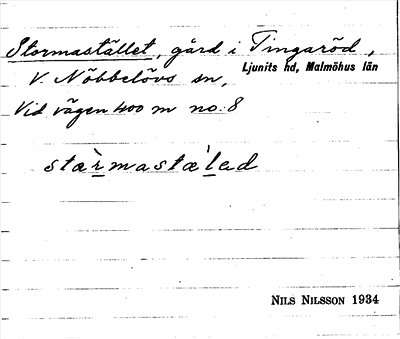 Stormastället, gård i Tingaröd,
Ljunits hd, Malmöhus län
V. Nöbbelövs sn,
Vid vägen 400 m no. 8
stàrmastæ'lad
NILS NILSSON 1934